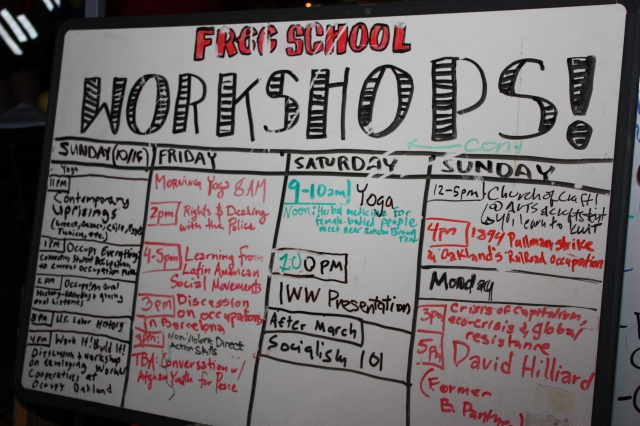 FREE SCHOOL
WORKSHOPS!
cont
SUNDAY (10/16)
Yoga
11PM
Contemporary
Uprisings
(Greece, Gaza, Chile,
Tunisia, etc.)
1PM Occupy Everything
Connecting Student Occupations
to Current Occupation
2PM Occupation Oral
History
3PM U.S. Labor History
4PM Work It! Build It!
Discussion & Workshop
on developing Worker
Cooperatives at
Occupy Oakland
FRIDAY
Morning Yoga 8AM
2pm Rights & Dealing
with the Police
4-5pm Learning from
Latin American
Social Movements
3pm Discussion
on occupations
in Barcelona
3pm: Nonviolent Direct
Action Skills
TBA: Conversation w/
Afghan Youth for Peace
SATURDAY
9-10am Yoga
Noon: Herbal medicine for
female-bodied people
meet near
Tent
2:00PM
IWW Presentation
After March
Socialism 101
SUNDAY
12-5pm Church of Craft!
@ Arts & crafts tent
learn to knit
4pm 1894 Pullman Strike
& Oakland's Railroad Occupation
Monday
3pm Crisis of Capitalism,
eco-crisis & global
resistance
5pm David Hilliard
(Former
B. Panther